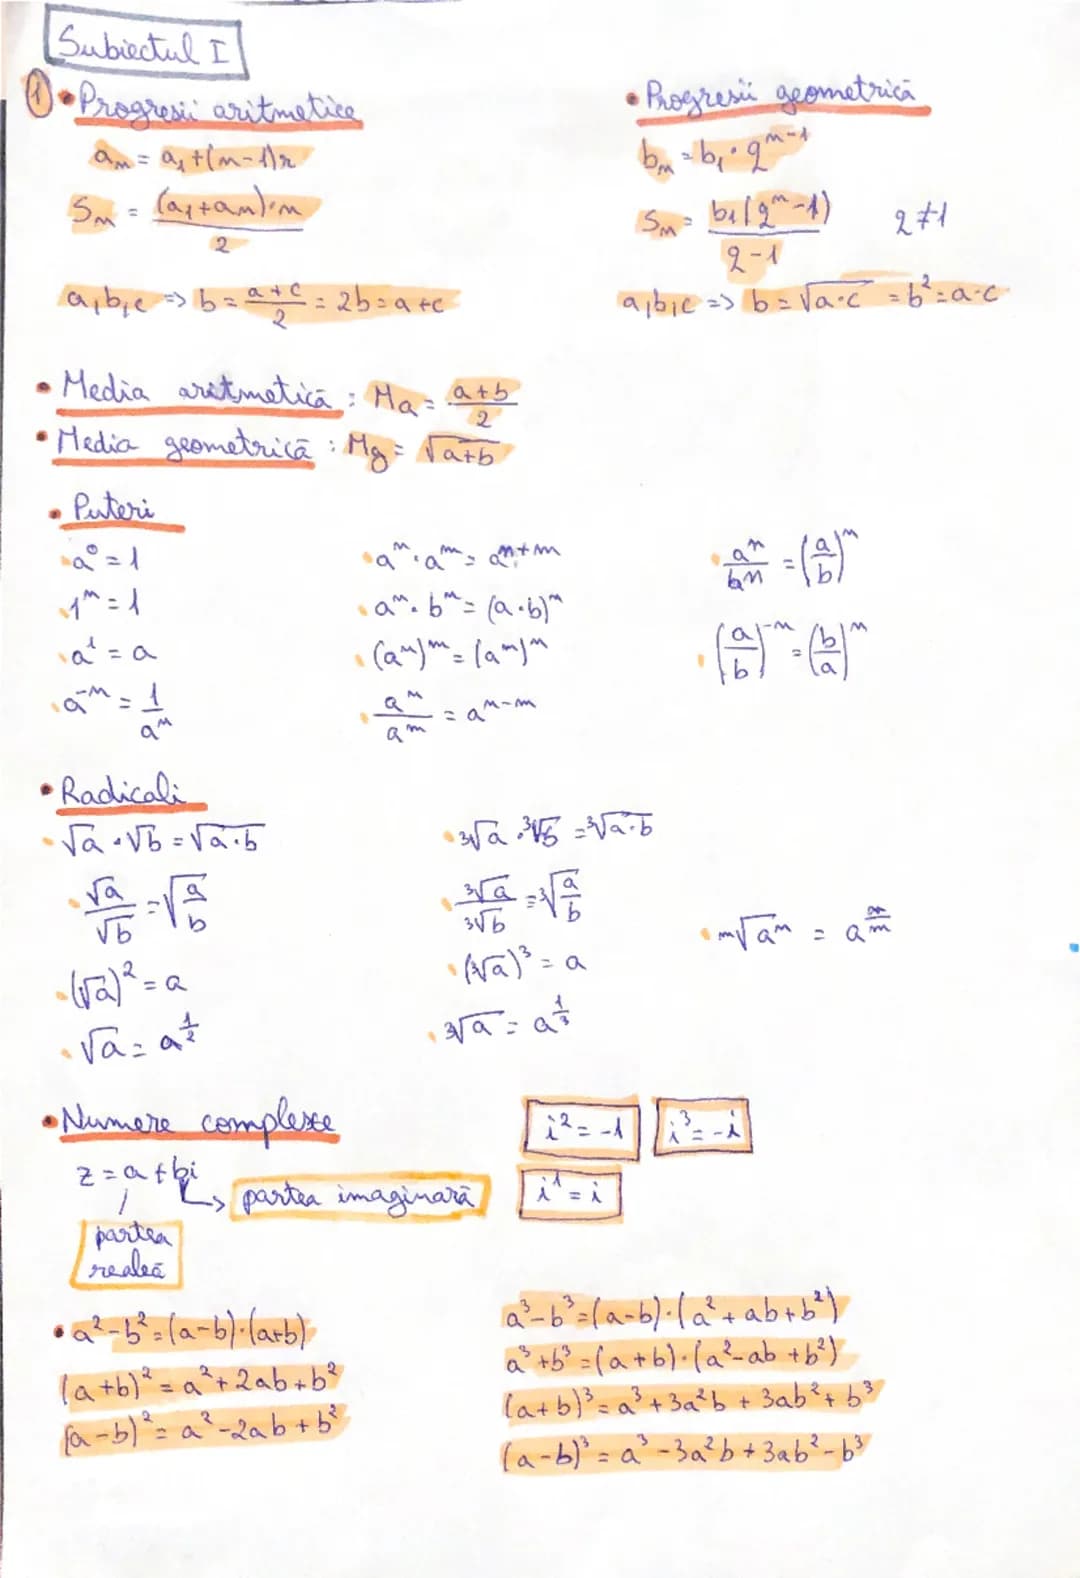 Subiectul I
① • Progresii aritmetice
aₙ = a₁ + (n-1)r
Sₙ = (a₁+aₙ)·n / 2
a,b,c => b = a+c / 2 = 2b = a+c
• Progresii geometrică
bₙ = b₁ · qⁿ⁻¹
Sₙ = b₁(qⁿ-1) / q-1   q ≠ 1
a,b,c => b = √a·c = b² = a·c
• Media aritmetică : Ma = a+b / 2
• Media geometrică : Mg = √a+b
• Puteri
• a⁰ = 1
• 1ⁿ = 1
• a¹ = a
• a⁻ⁿ = 1 / aⁿ
• aⁿ · aᵐ = aⁿ⁺ᵐ
• aⁿ · bⁿ = (a·b)ⁿ
• (aⁿ)ᵐ = (aᵐ)ⁿ
• aⁿ / aᵐ = aⁿ⁻ᵐ
• aⁿ / bⁿ = (a/b)ⁿ
• (a/b)⁻ⁿ = (b/a)ⁿ
• Radicali
• √a · √b = √a·b
• √a / √b = √a/b
• (√a)² = a
• √a = a^1/2
• ³√a · ³√b = ³√a·b
• ³√a / ³√b = ³√a/b
• (³√a)³ = a
• ³√a = a^1/3
• ᵐ√aⁿ = a^n/m
• Numere complexe
z = a + bi
partea imaginară
partea
realeă
i² = -1
i³ = -i
i¹ = i
• a² - b² = (a-b)·(a+b)
(a+b)² = a² + 2ab + b²
(a-b)² = a² - 2ab + b²
a³ - b³ = (a-b)·(a² + ab + b²)
a³ + b³ = (a+b)·(a² - ab + b²)
(a+b)³ = a³ + 3a²b + 3ab² + b³
(a-b)³ = a³ - 3a²b + 3ab² - b³